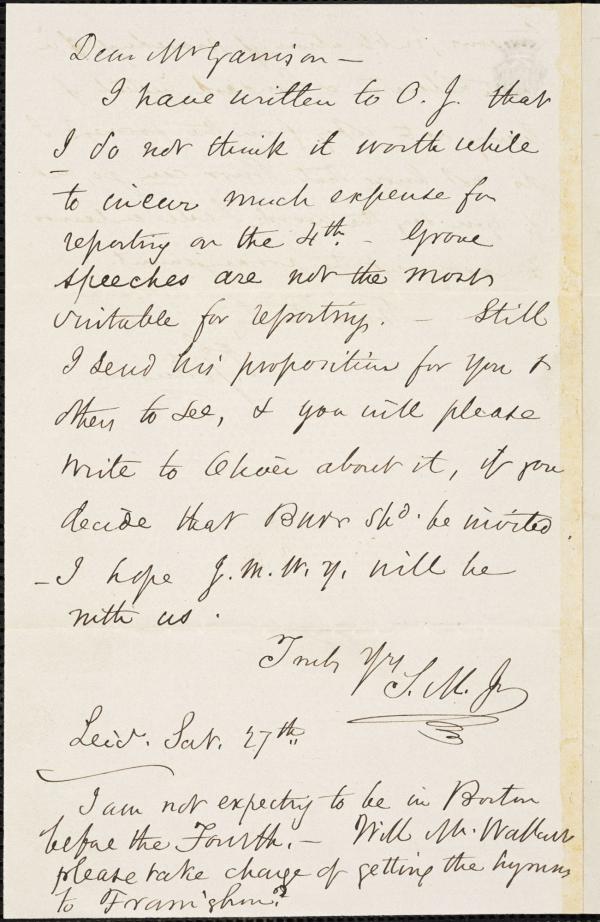 Dear Mr Garrison —
I have written to O. J. that
I do not think it worth while
to incur much expense for
reporting on the 4th. — Grove
speeches are not the most
suitable for reporting. — Still
I send his proposition for you &
others to see, & you will please
write to Oliver about it, if you
decide that Burr shd. be invited.
— I hope J. M. W. Y. will be
with us.
Truly Yrs
S. M. Jr
Leic. Sat. 27th.
I am not expecting to be in Boston
before the Fourth. — Will Mr. Wallcut
please take charge of getting the hymns
to Framighm?